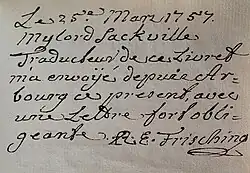 Le 25.e Mars 1757.
Mylord Sackville
Traducteur de ce Livret
m'a envoijé depuis Ar-
bourg ce present, avec
une Lettre fort obli-
geante. R. E. Frisching